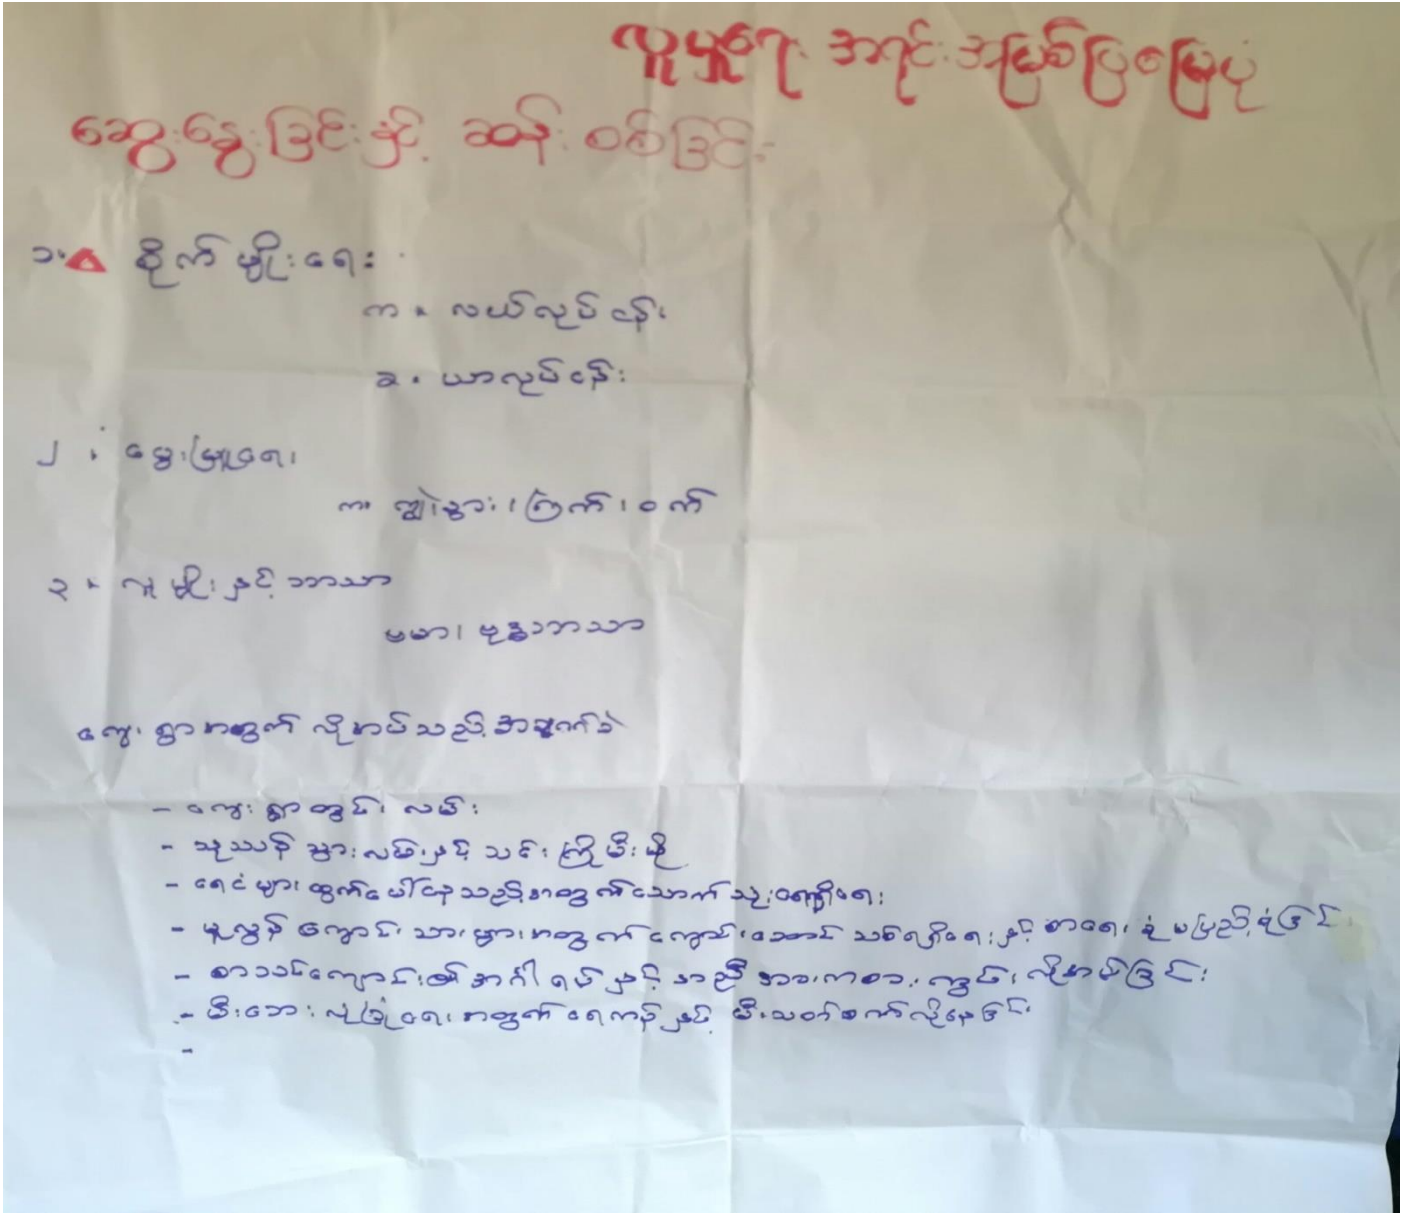 လူမှုရေး အရင်းအမြစ်ပြမြေပုံ
ဆွေးနွေးခြင်းနှင့် ဆန်းစစ်ခြင်း
၁။ စိုက်မျိုးရေး
က ။ လယ်လုပ်ငန်း
ခ ။ ယာလုပ်ငန်း
၂ ။ မွေးမြူရေး
က။ ကျွဲ၊နွား၊ ကြက်၊ ဝက်
၃ ။ လူမျိုးနှင့် ဘာသာ
ဗမာ၊ ဗုဒ္ဓဘာသာ
ကျေးရွာအတွက် လိုအပ်သည့်အချက်
- ကျေးရွာတွင်း လမ်း
- သုသာန် သွားလမ်းနှင့် သင်းဂြိုဟ်မီး
- ရေငံများ ထွက်ပေါ်နေသည့်အတွက် သောက်သုံးရေရရှိရေး
- မူလွန် ကျောင်းသားများအတွက် ကျောင်းဆောင် သစ်ရရှိရေးနှင့် စာရေး ခုံ မပြည့်စုံခြင်း
- စာသင်ကျောင်း၏ အင်္ဂါရပ်နှင့် အညီ အားကစားကွင်း လိုအပ်ခြင်း
- မီးဘေး လုံခြုံရေးအတွက် ရေကန်နှင့် မီးသတ်စက်လိုနေခြင်း
-